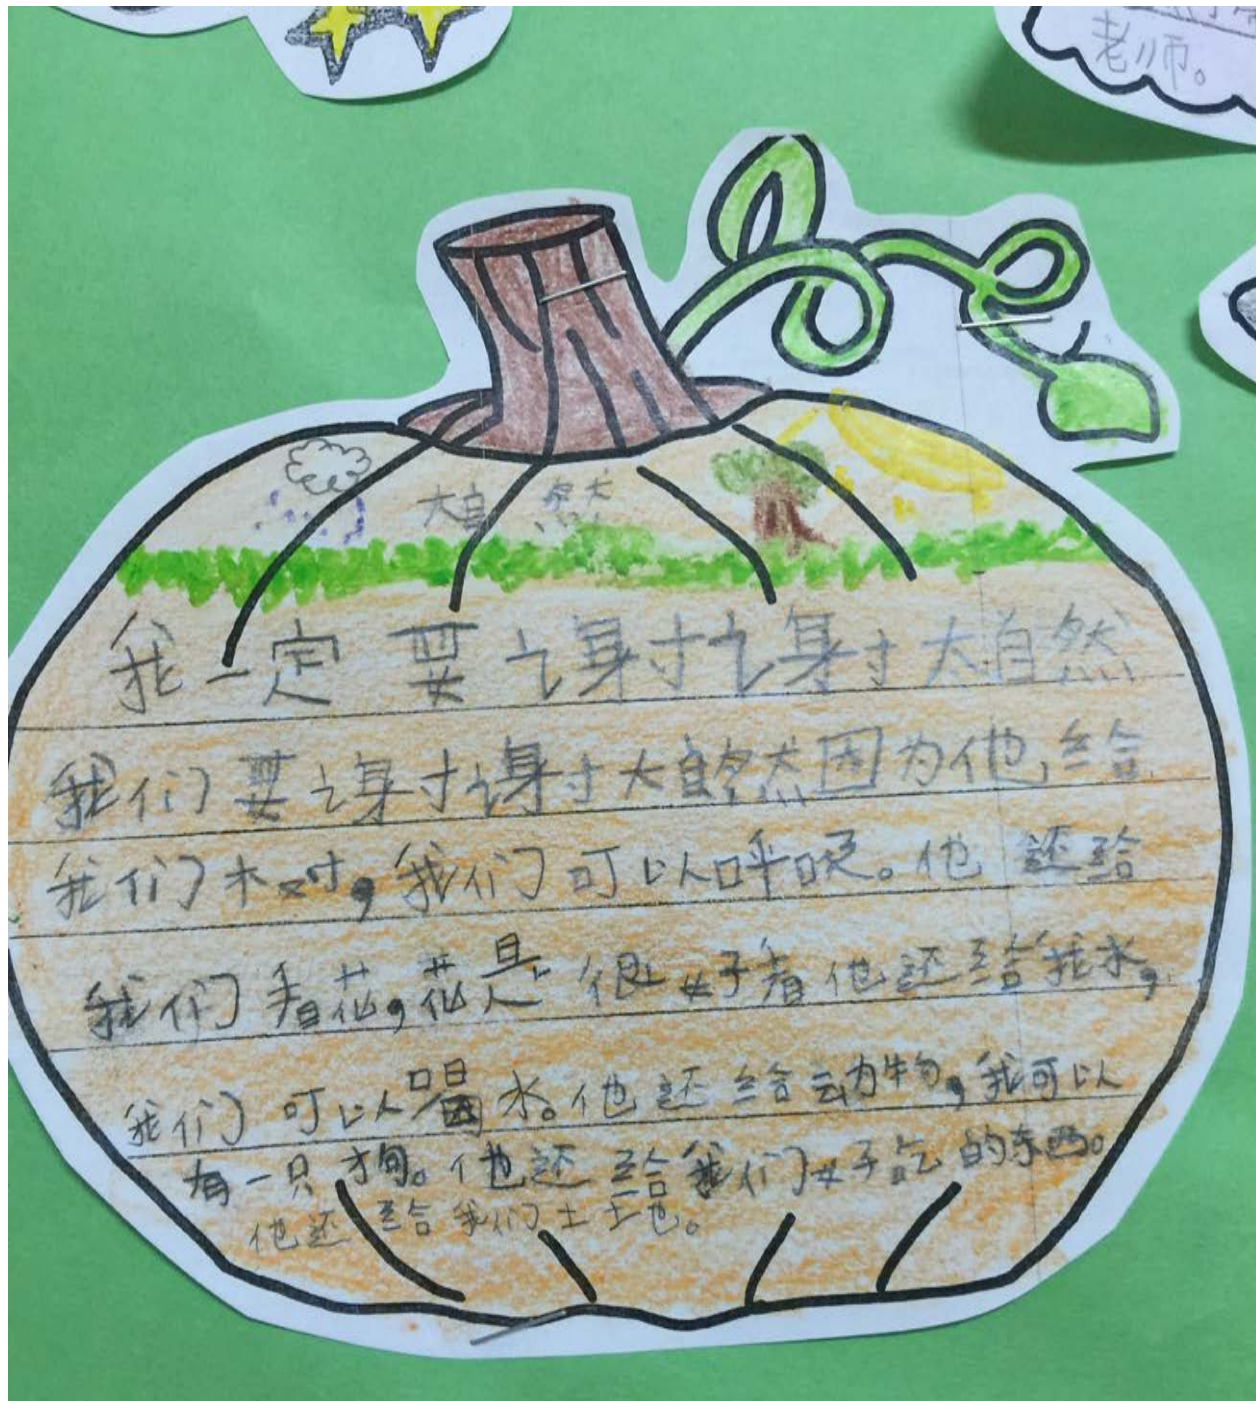 老师。
大自然
我一定要谢谢大自然
我们要谢谢大自然因为他给
我们木对,我们可以呼吸。他还给
我们看花,花是很好看他还给我水,
我们可以喝水。他还给动物,我可以
有一只狗。他还给我们好吃的东西。
他还给我们土土也。